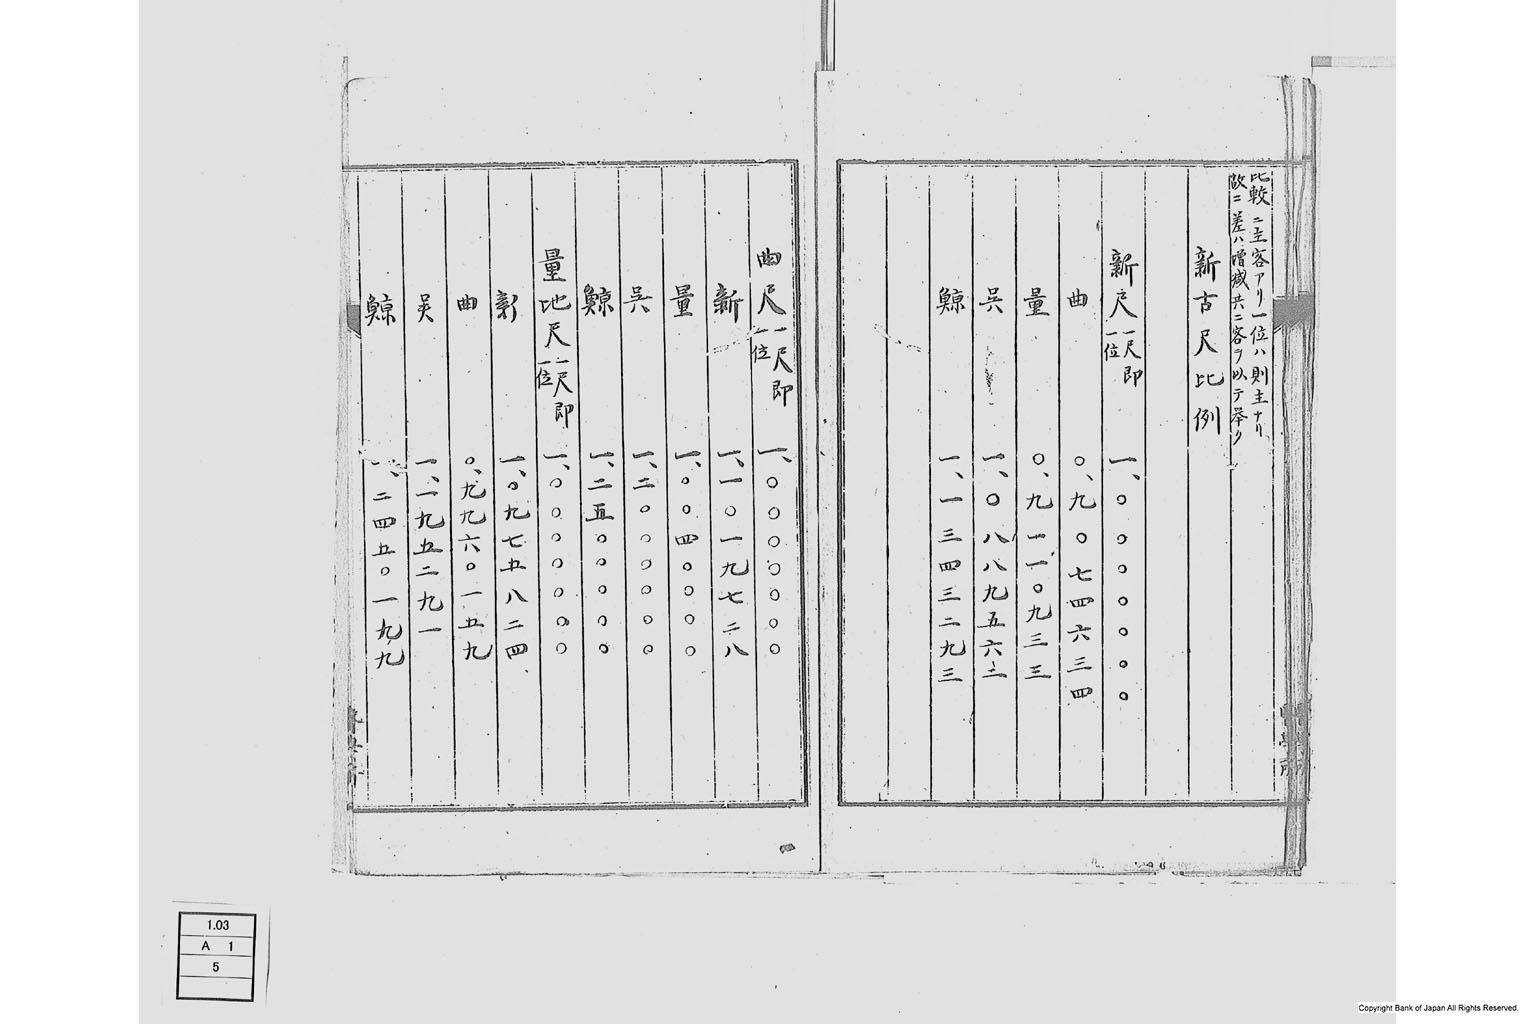 比較ニ主客アリ一位ハ則主ナリ
故ニ差ハ増減共ニ客ヲ以テ挙ク
新古尺比例
新尺 一尺即一位 一、〇〇〇〇〇〇〇
曲 〇、九〇七四六三四
量 〇、九一一〇九三三
呉 一、〇八八九五六三
鯨 一、一三四三二九三
曲尺 一尺即一位 一、〇〇〇〇〇〇〇
新 一、一〇一九七二八
量 一、〇〇四〇〇〇〇
呉 一、二〇〇〇〇〇〇
鯨 一、二五〇〇〇〇〇
量地尺 一尺即一位 一、〇〇〇〇〇〇〇
新 一、〇九七五八二四
曲 〇、九九六〇一五九
呉 一、一九五二九一
鯨 一、二四五〇一九九
1.03
A 1
5
Copyright Bank of Japan All Rights Reserved.